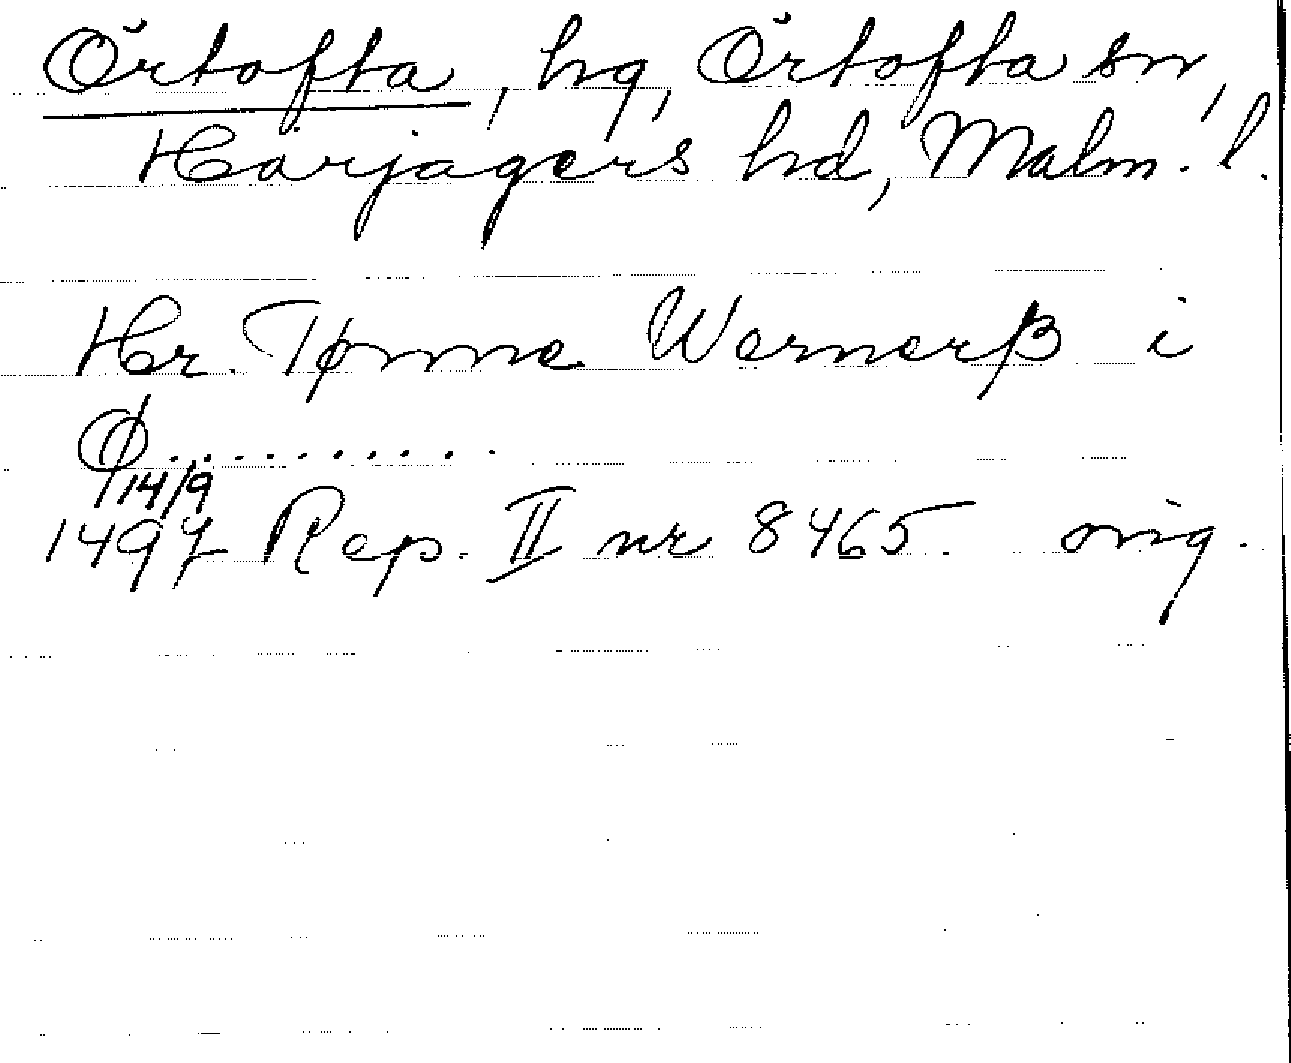 Örtofta, hg, Örtofta sn,
Harjagers hd, Malm. l.
Hr. Tønne Wernerß i
Ø..........
14/9
1497 Rep. II nr 8465. orig.